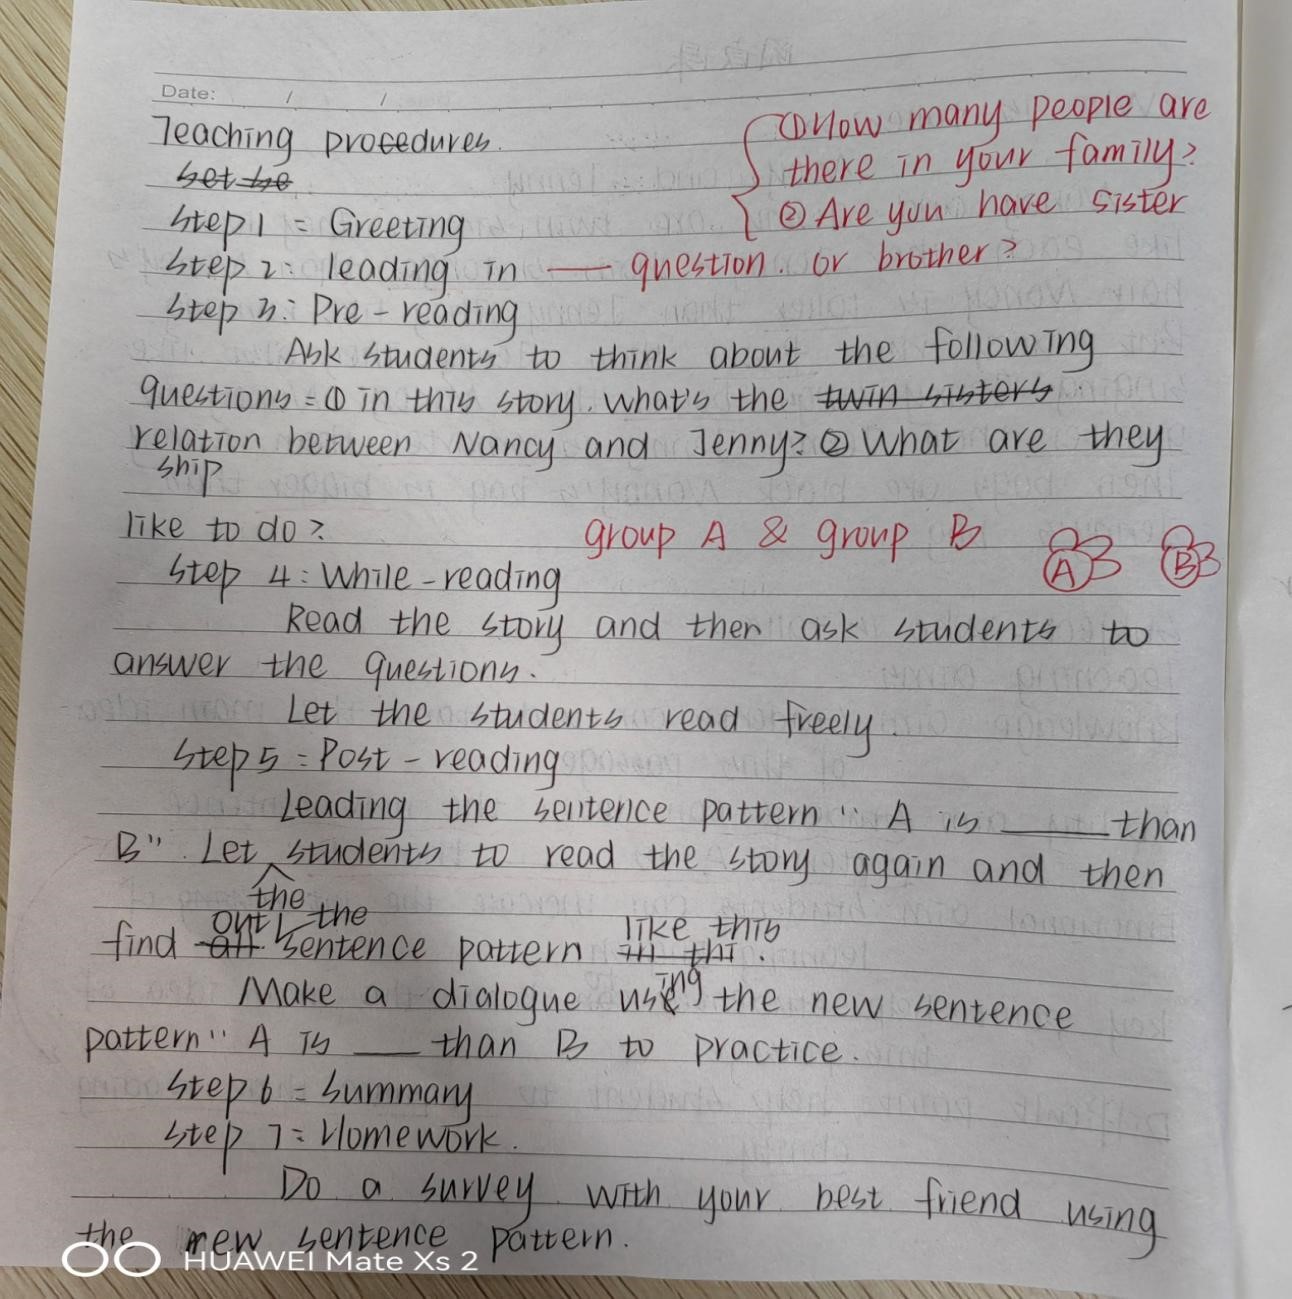 Date: / /
Teaching procedures.
set be
Step 1: Greeting
Step 2: leading in — question.
① How many people are
there in your family?
② Are you have sister
or brother?
Step 3: Pre-reading
Ask students to think about the following
questions: ① in this story. what's the twin sisters
relation between Nancy and Jenny? ② What are they
ship
like to do?
group A & group B
A B
Step 4: While-reading
Read the story and then ask students to
answer the questions.
Let the students read freely.
Step 5: Post-reading
Leading the sentence pattern "A is ____ than
B". Let students to read the story again and then
the
out the like this
find all sentence pattern in thi.
ing
Make a dialogue use the new sentence
pattern "A is ___ than B to practice.
Step 6: Summary
Step 7: Homework.
Do a survey with your best friend using
the new sentence pattern.
HUAWEI Mate Xs 2